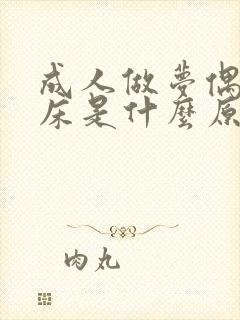 成人做夢偶
床是什麼原
肉丸